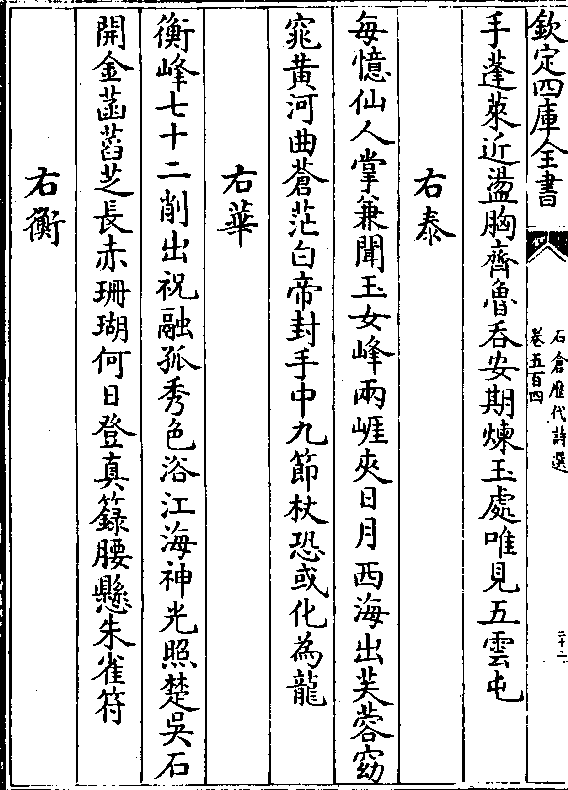 欽定四庫全書
石倉歴代詩選
卷五百四
二十二
手蓬萊近盪胸齊魯呑安期煉玉處唯見五雲屯
右泰
每憶仙人掌兼聞玉女峰兩崕夾日月西海出芙蓉窈
窕黄河曲蒼茫白帝封手中九節杖恐或化為龍
右華
衡峰七十二削出祝融孤秀色浴江海神光照楚吳石
開金菡萏芝長赤珊瑚何日登真籙腰懸朱雀符
右衡